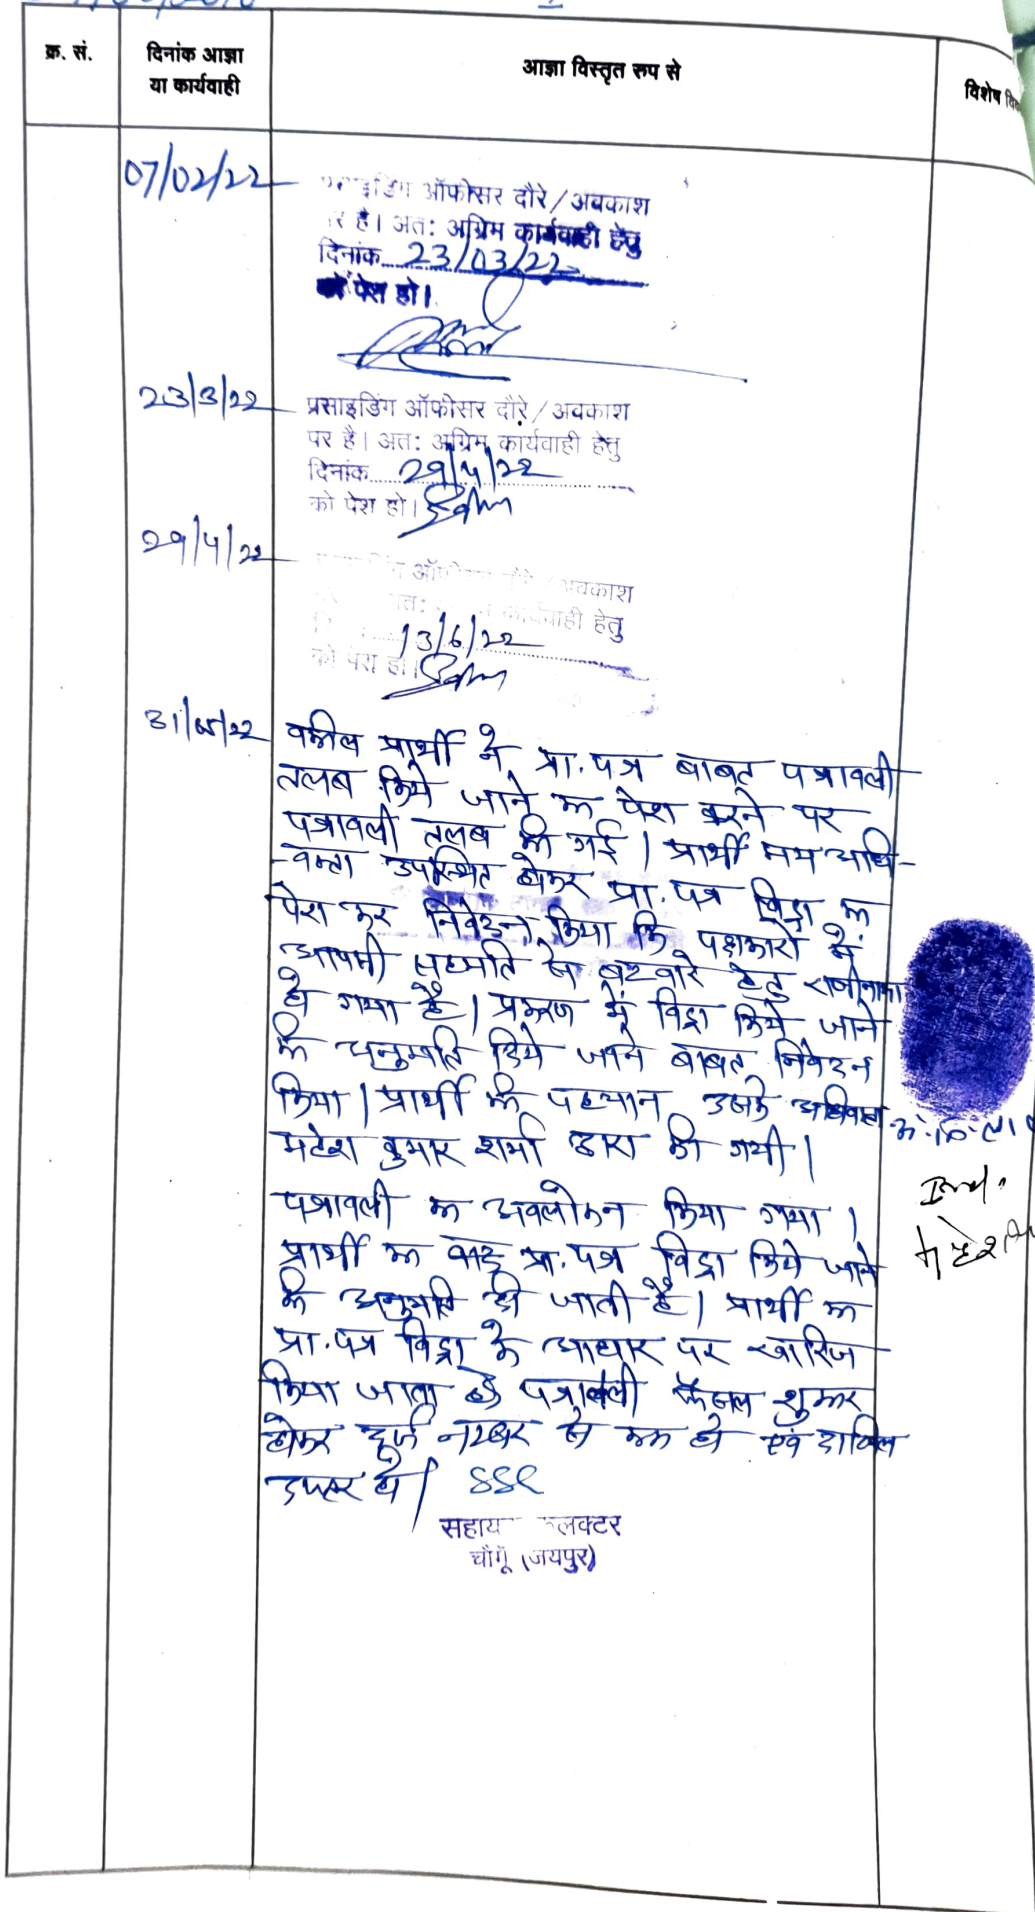 क्र. सं.
दिनांक आज्ञा
या कार्यवाही
आज्ञा विस्तृत रूप से
विशेष
07/02/22
ऑफीसर दौरे/अवकाश
है। अतः अग्रिम कार्यवाही हेतु
दिनांक 23/03/22
को पेश हो।
23/3/22
प्रसाइडिंग ऑफीसर दौरे/अवकाश
पर है। अतः अग्रिम कार्यवाही हेतु
दिनांक 29/4/22
को पेश हो।
29/4/22
अवकाश
कार्यवाही हेतु
13/6/22
को पेश हो।
31/05/22
वकील प्रार्थी ने प्रा.पत्र बाबत पत्रावली
तलब किये जाने का पेश करने पर
पत्रावली तलब की गई। प्रार्थी मय अधि-
-वक्ता उपस्थित होकर प्रा.पत्र विड्रा का
पेश कर निवेदन किया कि पक्षकारों में
आपसी सहमति से बटवारे हेतु राजीनामा
हो गया है। प्रकरण में विड्रा किये जाने
की अनुमति दिये जाने बाबत निवेदन
किया। प्रार्थी की पहचान उसके अधिवक्ता
महेश कुमार शर्मा द्वारा की गयी।
Ind.
पत्रावली का अवलोकन किया गया।
प्रार्थी का वाद प्रा.पत्र विड्रा किये जाने
की अनुमति दी जाती है। प्रार्थी का
प्रा.पत्र विड्रा के आधार पर खारिज
किया जाता है पत्रावली फैसल शुमार
होकर दर्ज नम्बर से कम हो एवं दाखिल
दफ्तर हो।
सहाय लक्टर
चौमूँ (जयपुर)